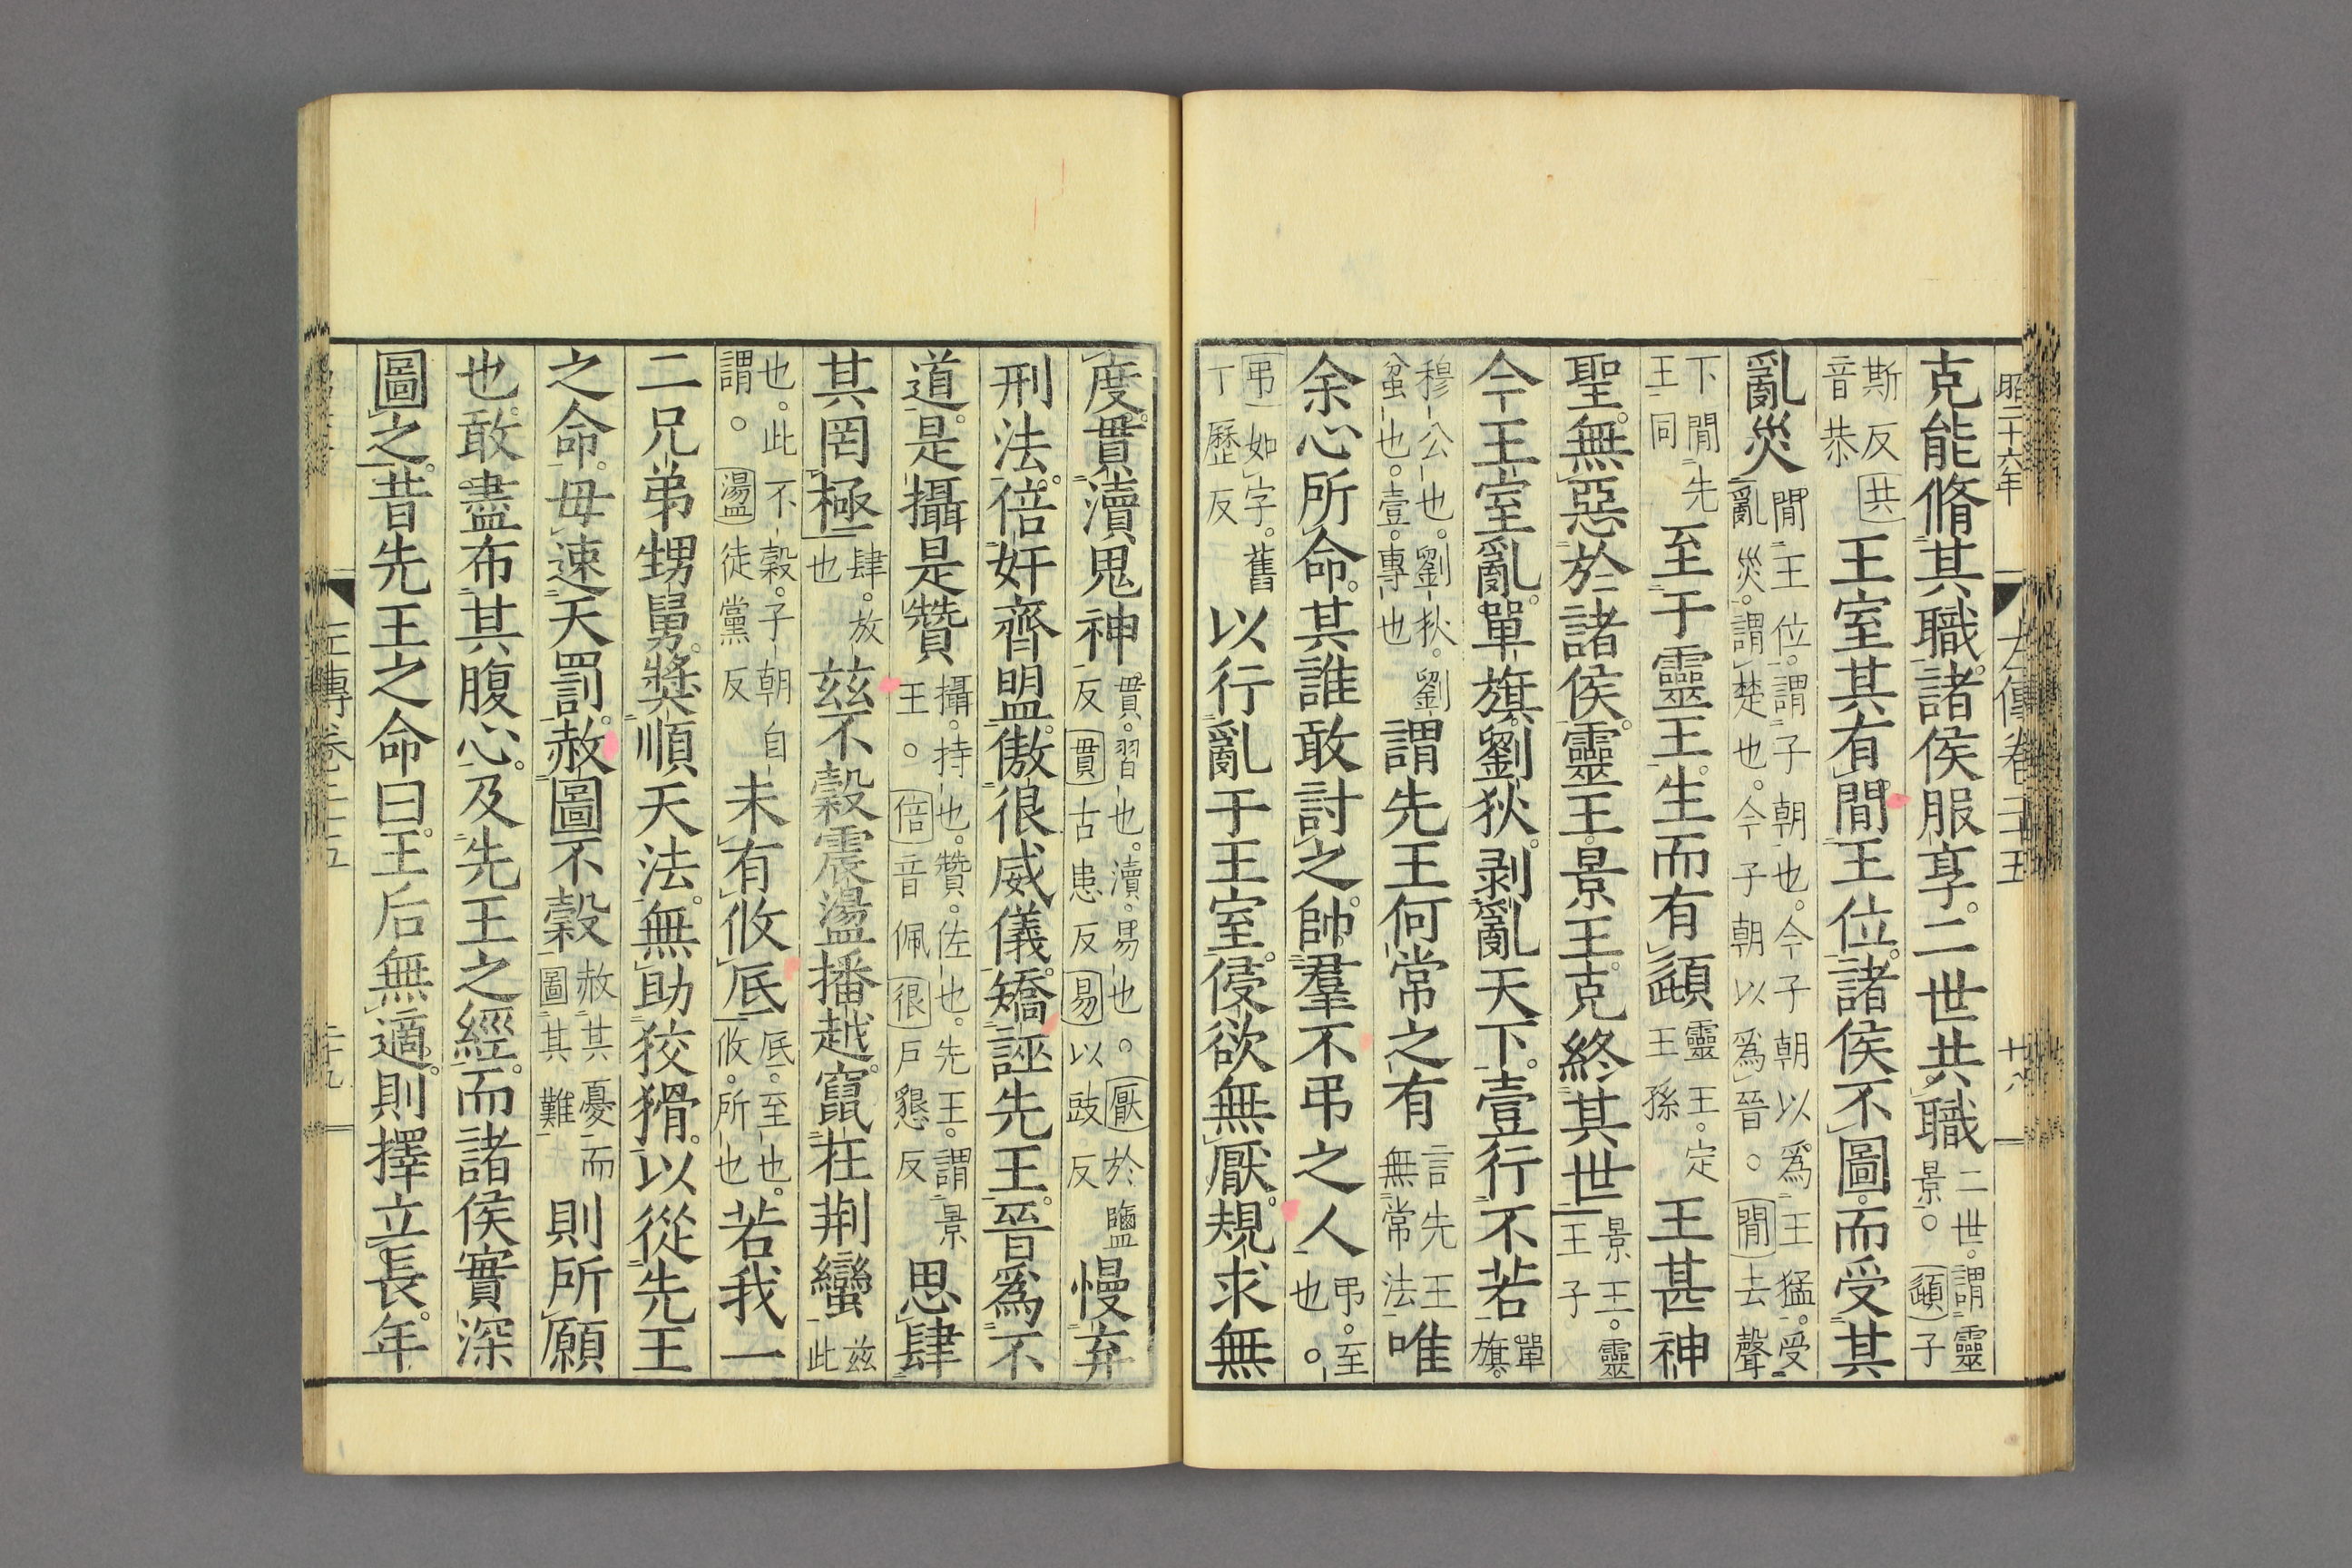 昭二十六年 左傳卷二十五 十八
克能脩其職。諸侯服享。二世共職二世。謂靈景。○頿子
斯反共音恭王室其有間王位。諸侯不圖。而受其
亂災閒王位。謂子朝也。今子朝以爲王猛。受亂災。謂楚也。今子朝以爲晉。○閒去聲
下閒先王同至于靈王。生而有頿靈王。定王孫王甚神
聖。無惡於諸侯。靈王。景王。克終其世景王。靈王子
今王室亂。單旗。劉狄。剥亂天下。壹行不若單旗。
穆公也。劉狄。劉蚠也。壹。專也謂先王何常之有言先王無常法唯
余心所命。其誰敢討之。帥羣不弔之人弔。至也。○
弔如字。舊丁歷反以行亂于王室。侵欲無厭。規求無
度。貫瀆鬼神貫。習也。瀆。易也。○厭於鹽反貫古患反易以豉反慢弃
刑法。倍奸齊盟。傲很威儀。矯誣先王。晉爲不
道。是攝是贊攝。持也。贊。佐也。先王。謂景王。○倍音佩很戶懇反思肆
其罔極肆。放也兹不穀震盪播越。竄在荆蠻兹此
也。此不穀。子朝自謂。○盪徒黨反未有攸厎厎。至也。攸。所也若我一
二兄弟甥舅。奬順天法。無助狡猾。以從先王
之命。毋速天罰。赦圖不穀赦其憂而圖其難則所願
也。敢盡布其腹心。及先王之經。而諸侯實深
圖之。昔先王之命曰。王后無適。則擇立長。年
左傳卷二十五 二十九